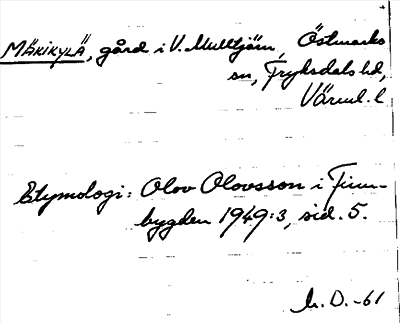 MÄKIKYLÄ, gård i V. Mulltjärn, Östmarks
sn, Fryksdals hd,
Värml. l
Etymologi: Olov Olovsson i Finn-
bygden 1949:3, sid. 5.
D. -61